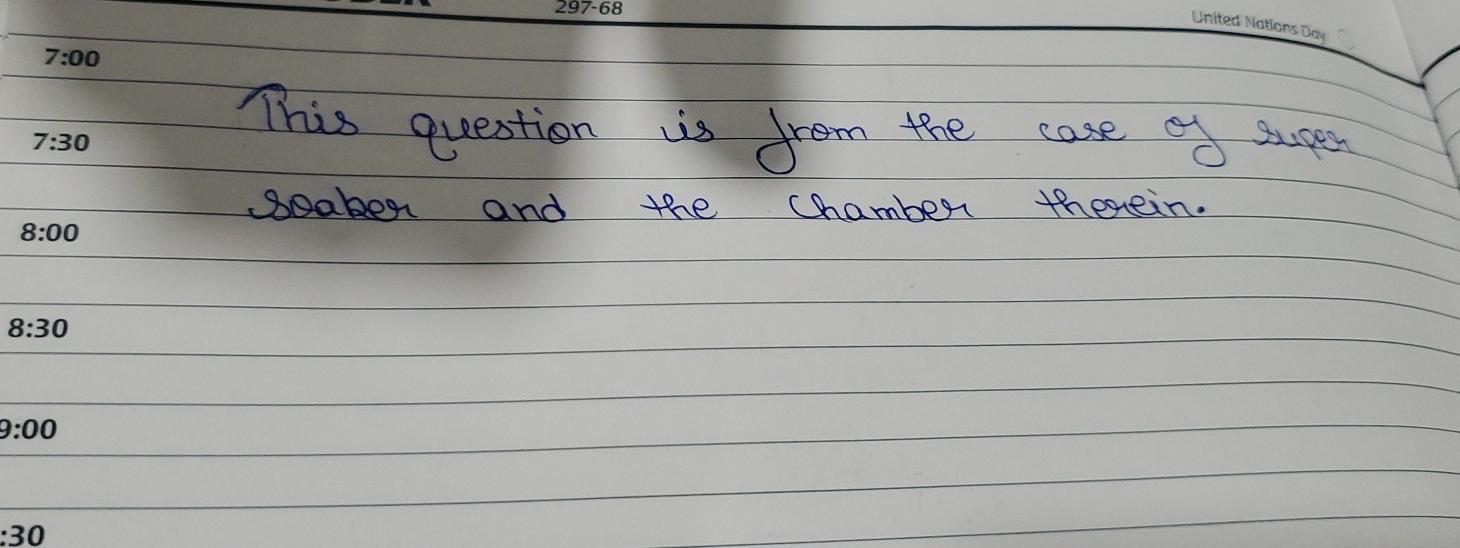 297-68
United Nations Day
7:00
This question is from the case of super
7:30
soaber and the Chamber therein.
8:00
8:30
9:00
:30